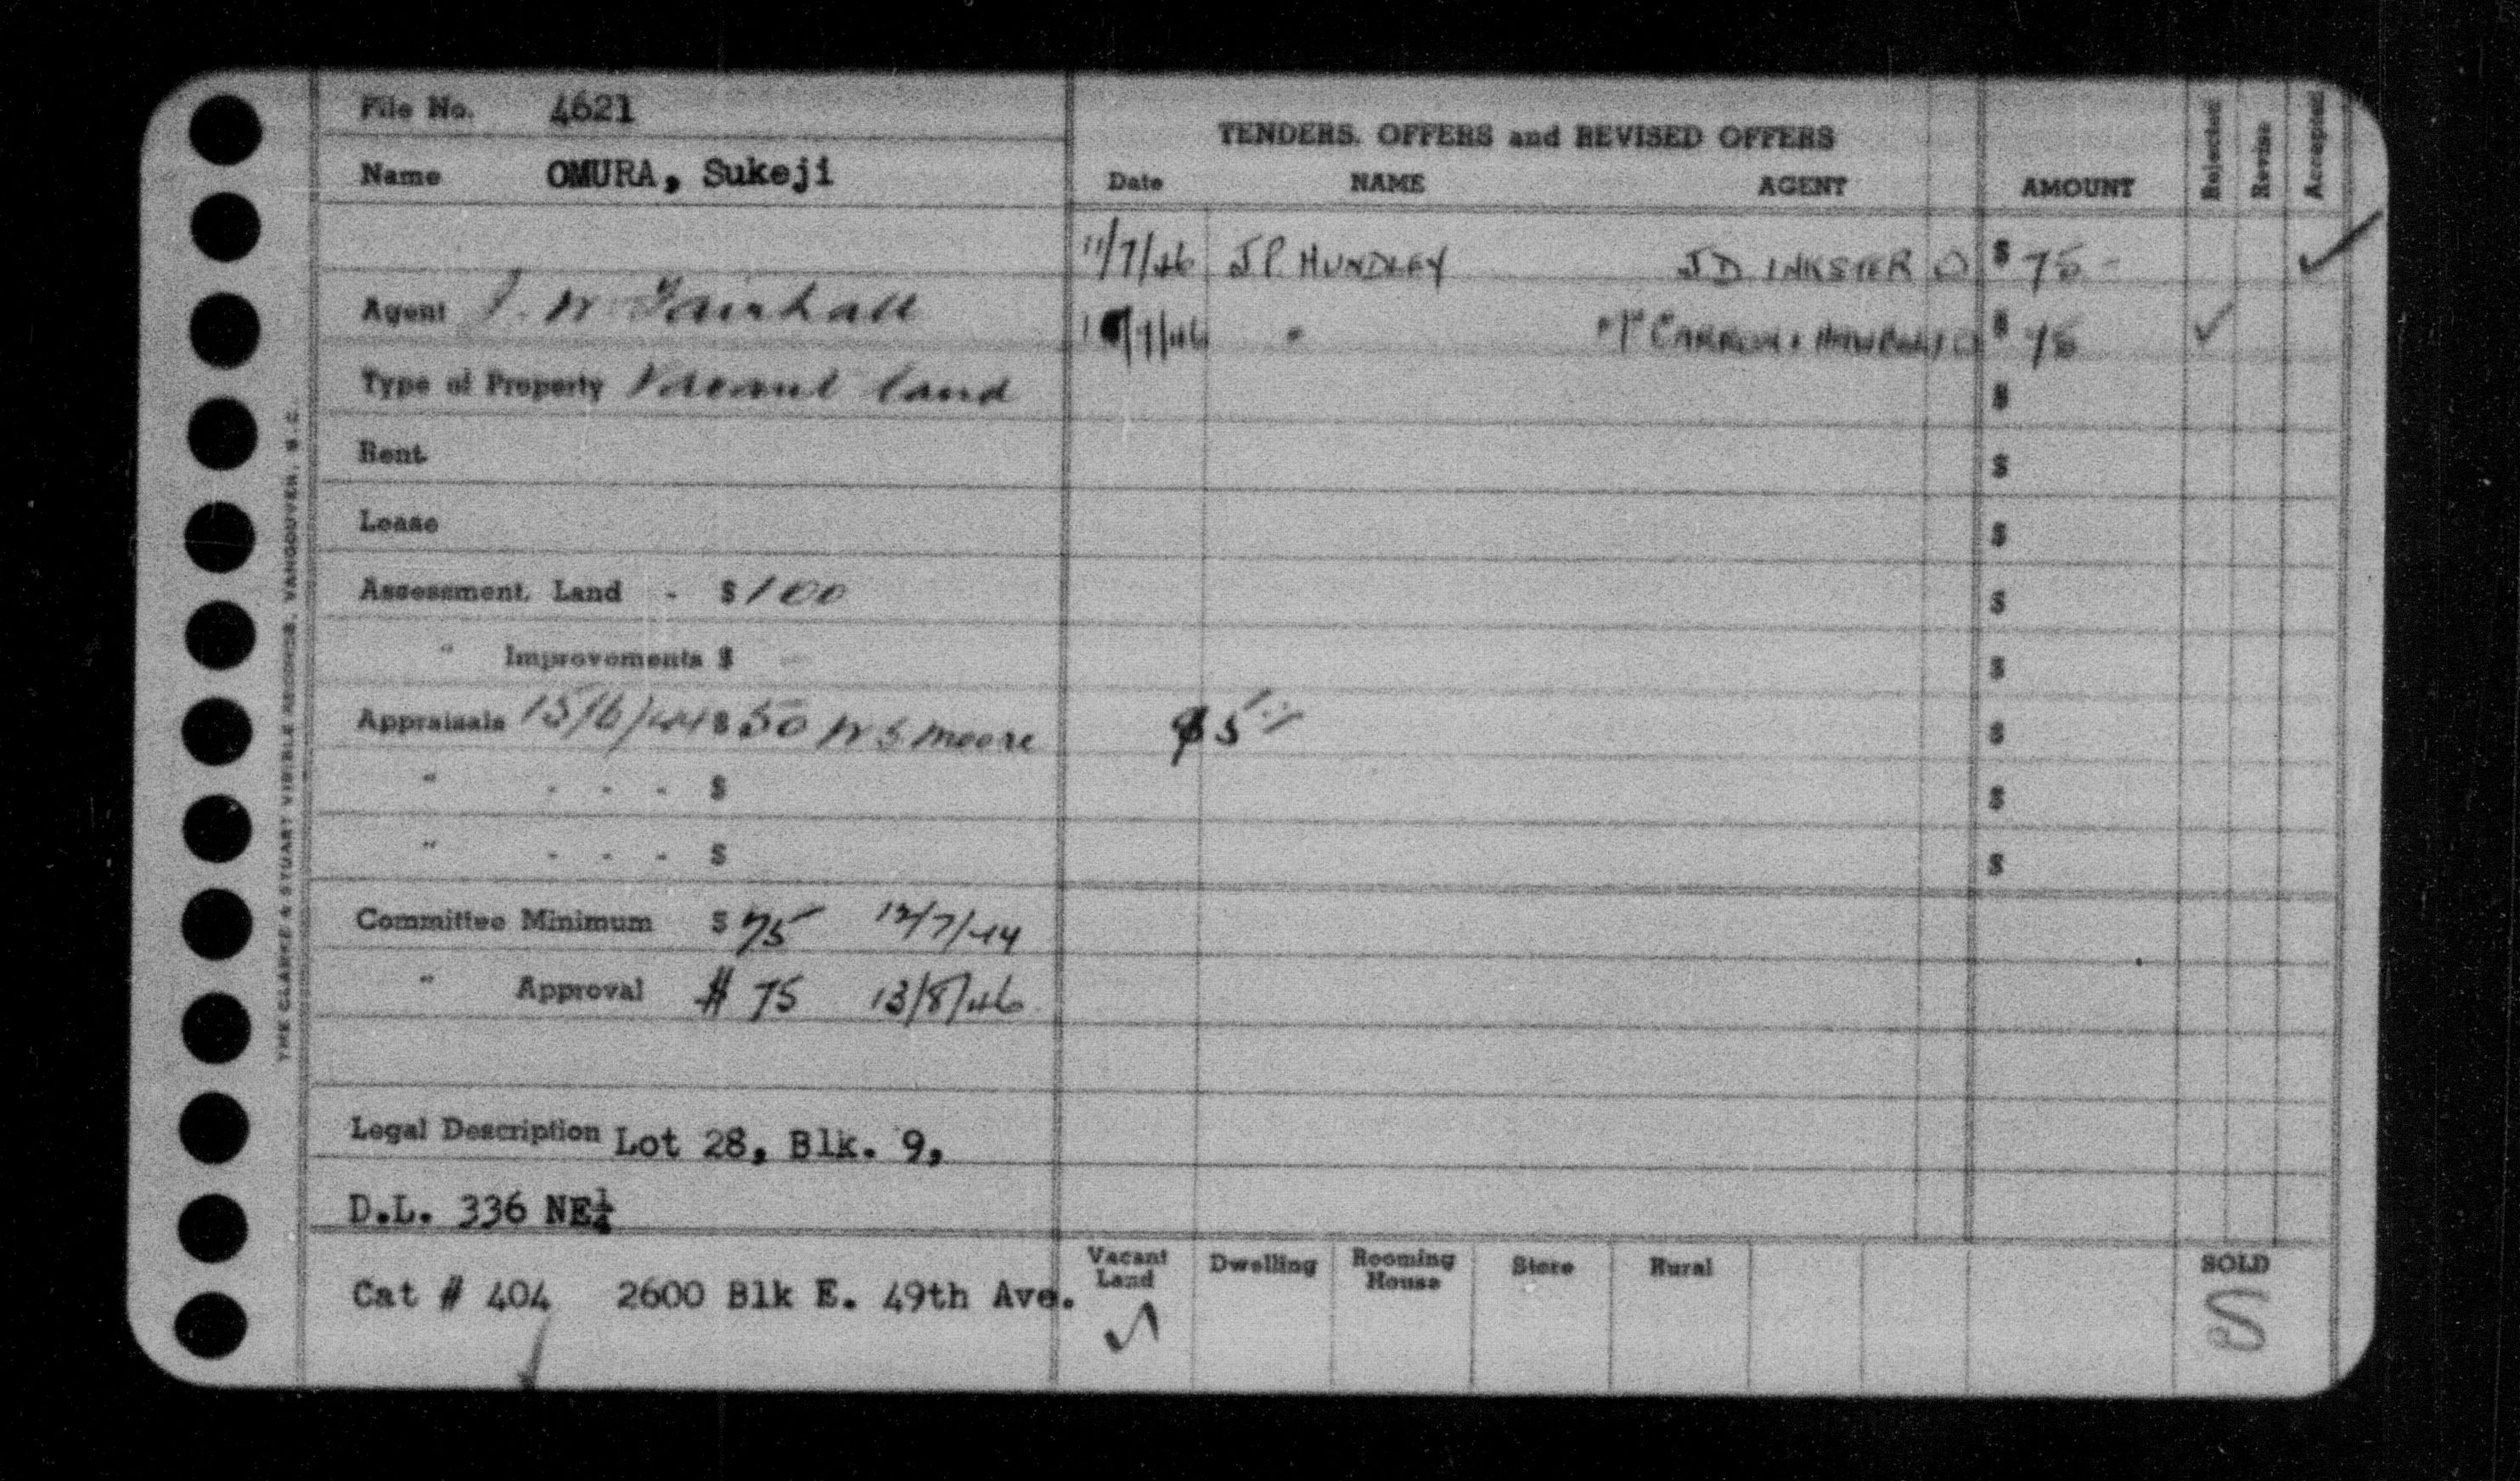 File No. 4621
Name OMURA, Sukeji
Agent J. W. Fairhall
Type of Property Vacant land
Rent
Lease
Assessment, Land - $ 100
" Improvements $ -
Appraisals 15/6/44 $ 50 W S. Moore
" - - - $
" - - - $
Committee Minimum $ 75 12/7/44
" Approval $ 75 13/8/46
Legal Description Lot 28, Blk. 9,
D.L. 336 NE¼
Cat # 404 2600 Blk E. 49th Ave.
TENDERS, OFFERS and REVISED OFFERS
Date NAME AGENT AMOUNT Rejection Revise Accepted
11/7/46 J P. HUNDLEY J D INKSTER O $ 75 - ✓
/7/46 " $ 75 ✓
$
$
$
$
$
$
$
$
Vacant Land ✓ Dwelling Rooming House Store Rural SOLD S
THE CLARKE & STUART VISIBLE RECORDS, VANCOUVER, B.C.